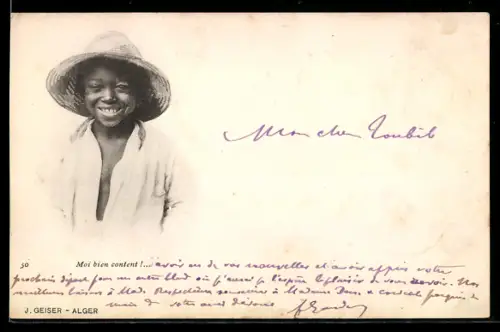 Mon cher Toubib
50
Moi bien content !... d'avoir eu de vos nouvelles et d'avoir appris votre
prochain départ pour un autre bled où j'aurai je l'espère le plaisir de vous revoir. Nos
meilleurs baisers à Mad. Respectueux à Madame
de votre ami dévoué
J. GEISER - ALGER